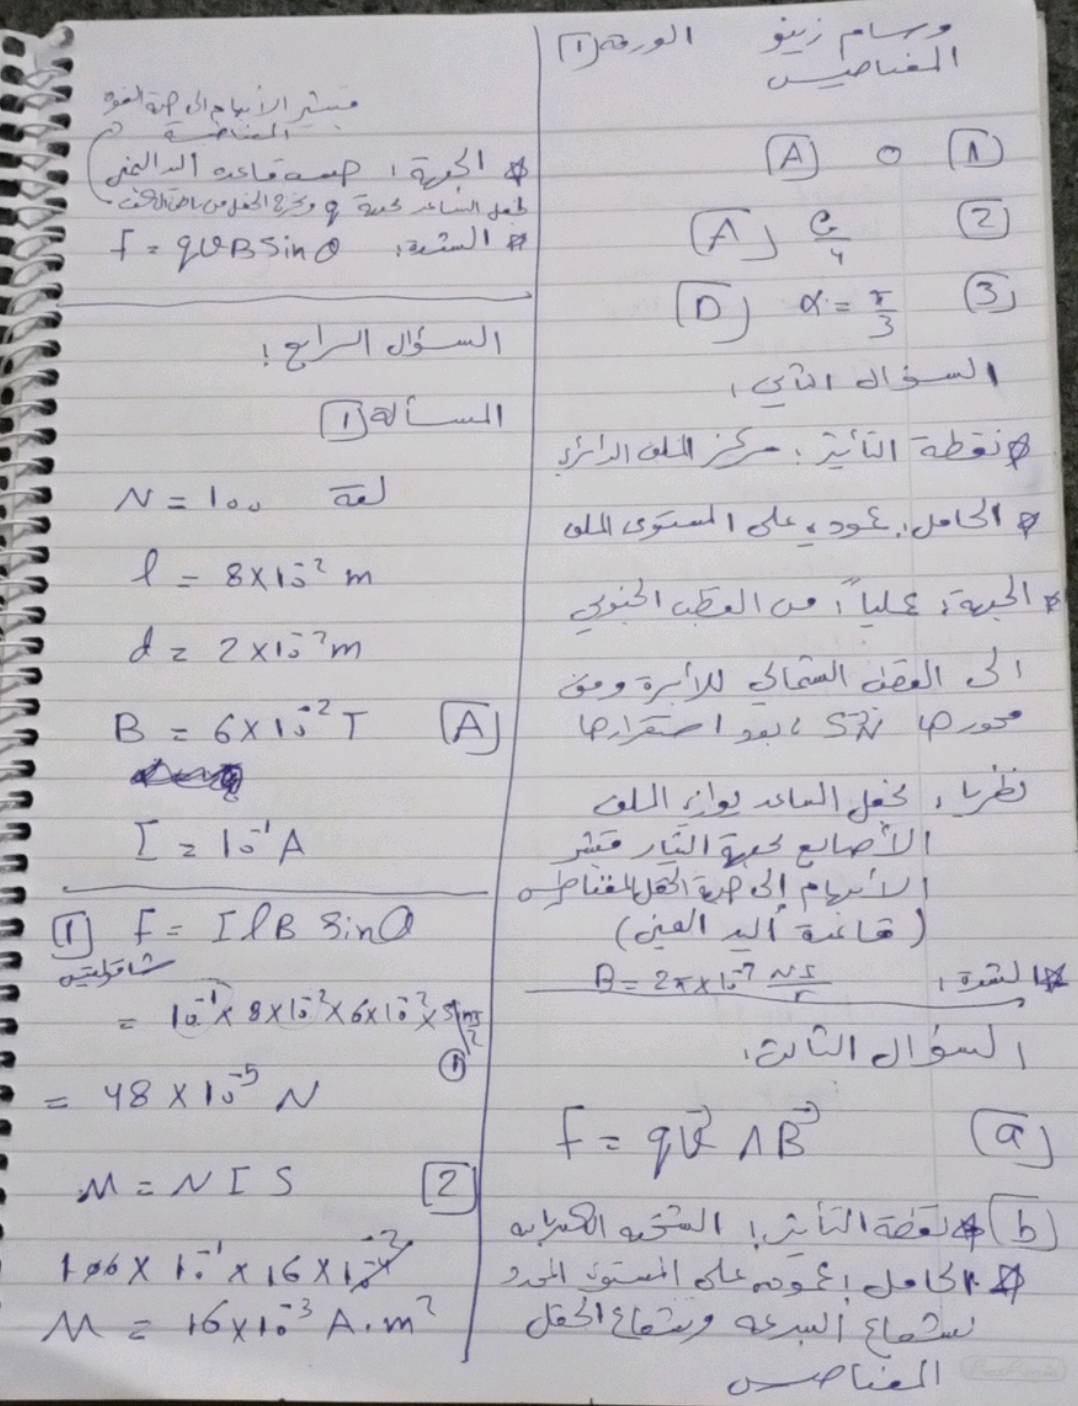 وسام زينو الورقة (1)
المغناطيس
1 0 A
2 e/4 A
3 α = π/3 D
السؤال الثاني:
نقطة التأثير: مركز الملف الدائري
الحامل: عمودي على المستوى الملف
الجهة: عملياً: من القطب الجنوبي
الى القطب الشمالي للأبرة وفق
محورها SN بعد استقرارها
نظريا: نجعل الساعد يوازي الملف
الأصابع بجهة التيار فيشير
الأبهام إلى جهة الحقل المغناطيسي
(قاعدة أليد اليمنى)
الشدة: B = 2π × 10⁻⁷ NI/r
السؤال الثالث:
a F = qv⃗ ∧ B⃗
b نقطة التأثير: الشحنة الكهربائية
الحامل: عمودي على المستوي المحدد
بشعاع السرعة وشعاع الحقل
المغناطيسي
فيشير الأبهام الى جهة القوة
المغناطيسية
الجهة: حسب قاعدة اليد اليمنى
نجعل الساعد بجهة q ويخرج الحقل من راحة الكف
الشدة: F = qvB sin θ
السؤال الرابع:
المسألة 1
N = 100 لفة
l = 8×10⁻² m
d = 2×10⁻² m
B = 6×10⁻² T A
I = 10⁻¹ A
1 F = I l B sin θ
شاقوليتين
= 10⁻¹ × 8×10⁻² × 6×10⁻² × sin π/2
1
= 48 × 10⁻⁵ N
M = N I S 2
100 × 10⁻¹ × 16 × 10
M = 16×10⁻³ A.m²